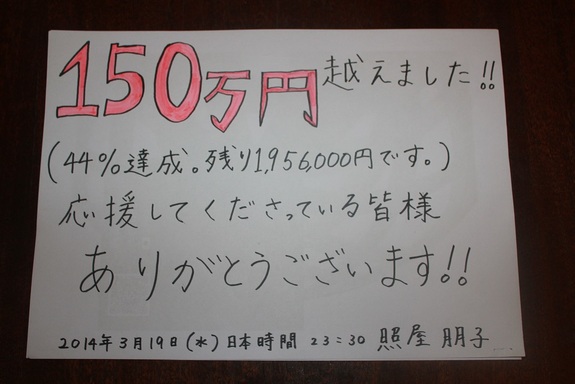 150万円越えました!!
(44%達成。残り1,956,000円です。)
応援してくださっている皆様
ありがとうございます!!
2014年3月19日(水)日本時間 23:30 照屋 朋子